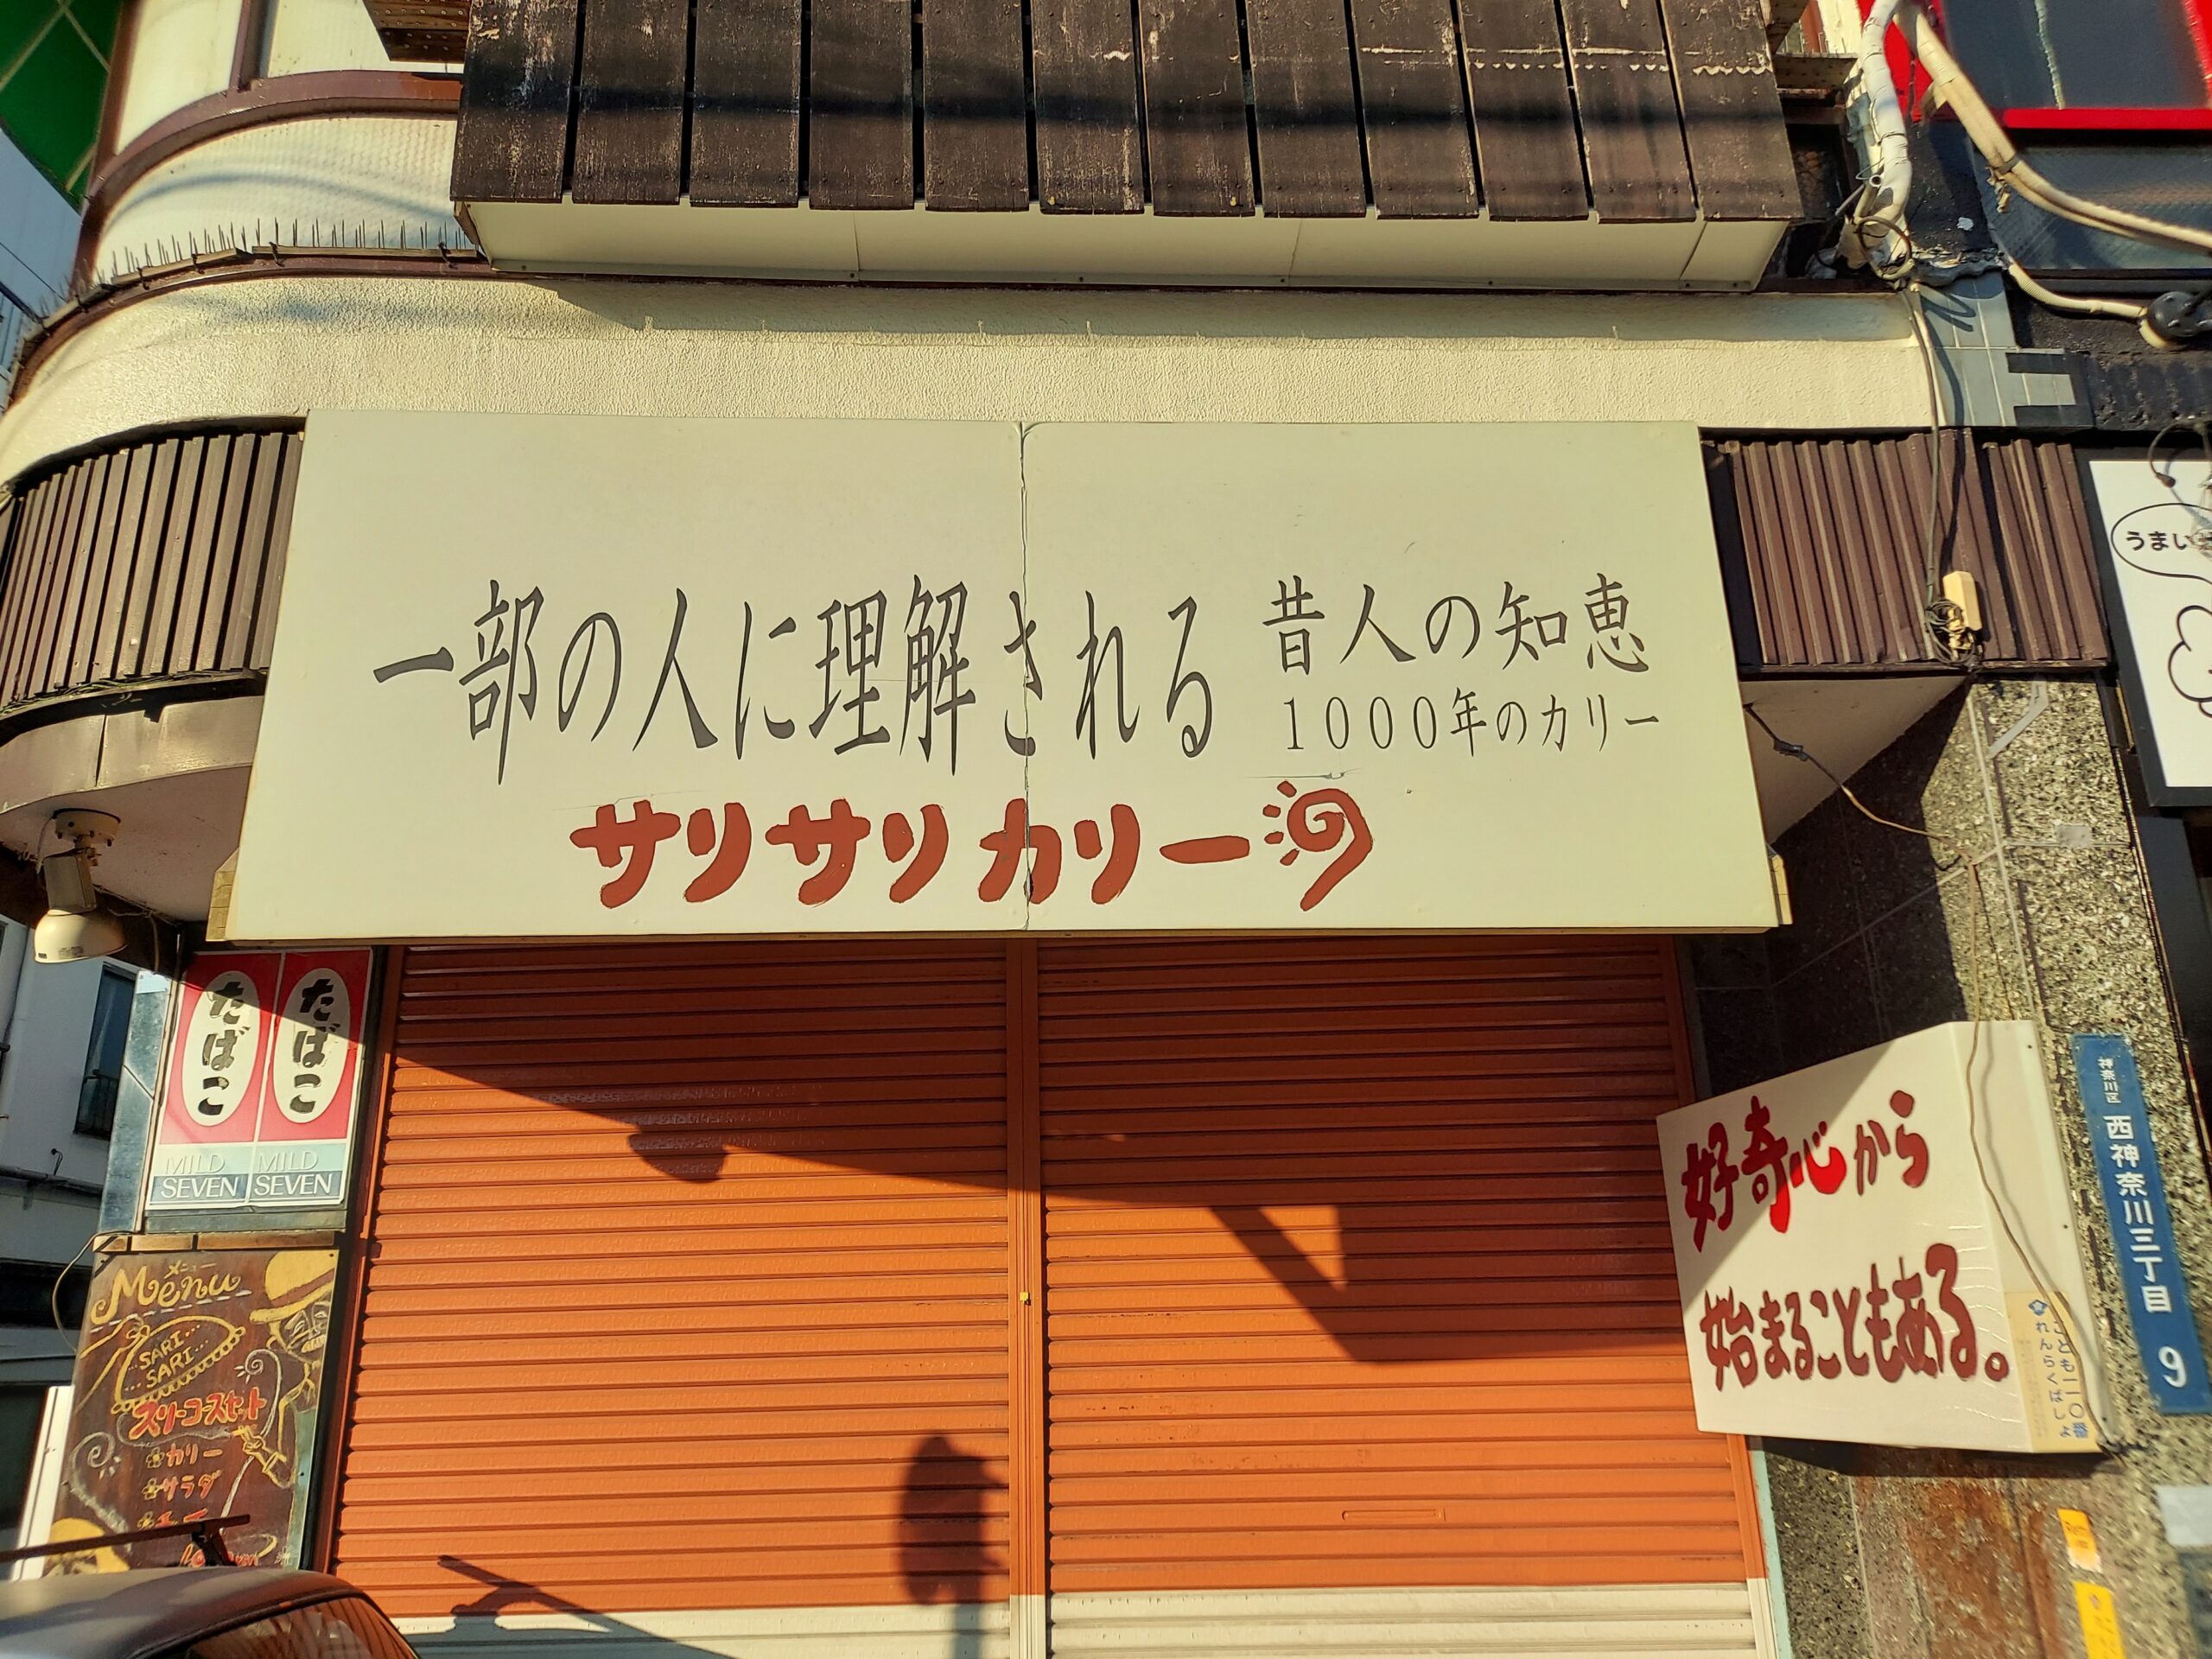 一部の人に理解される
昔人の知恵
1000年のカリー
サリサリカリー
うまい
たばこ
たばこ
MILD
SEVEN
MILD
SEVEN
メニュー
Menu
SARI...
SARI...
スリーコースセット
カリー
サラダ
好奇心から
始まることもある。
こども一一〇番
れんらくばしょ
神奈川区
西神奈川三丁目
9